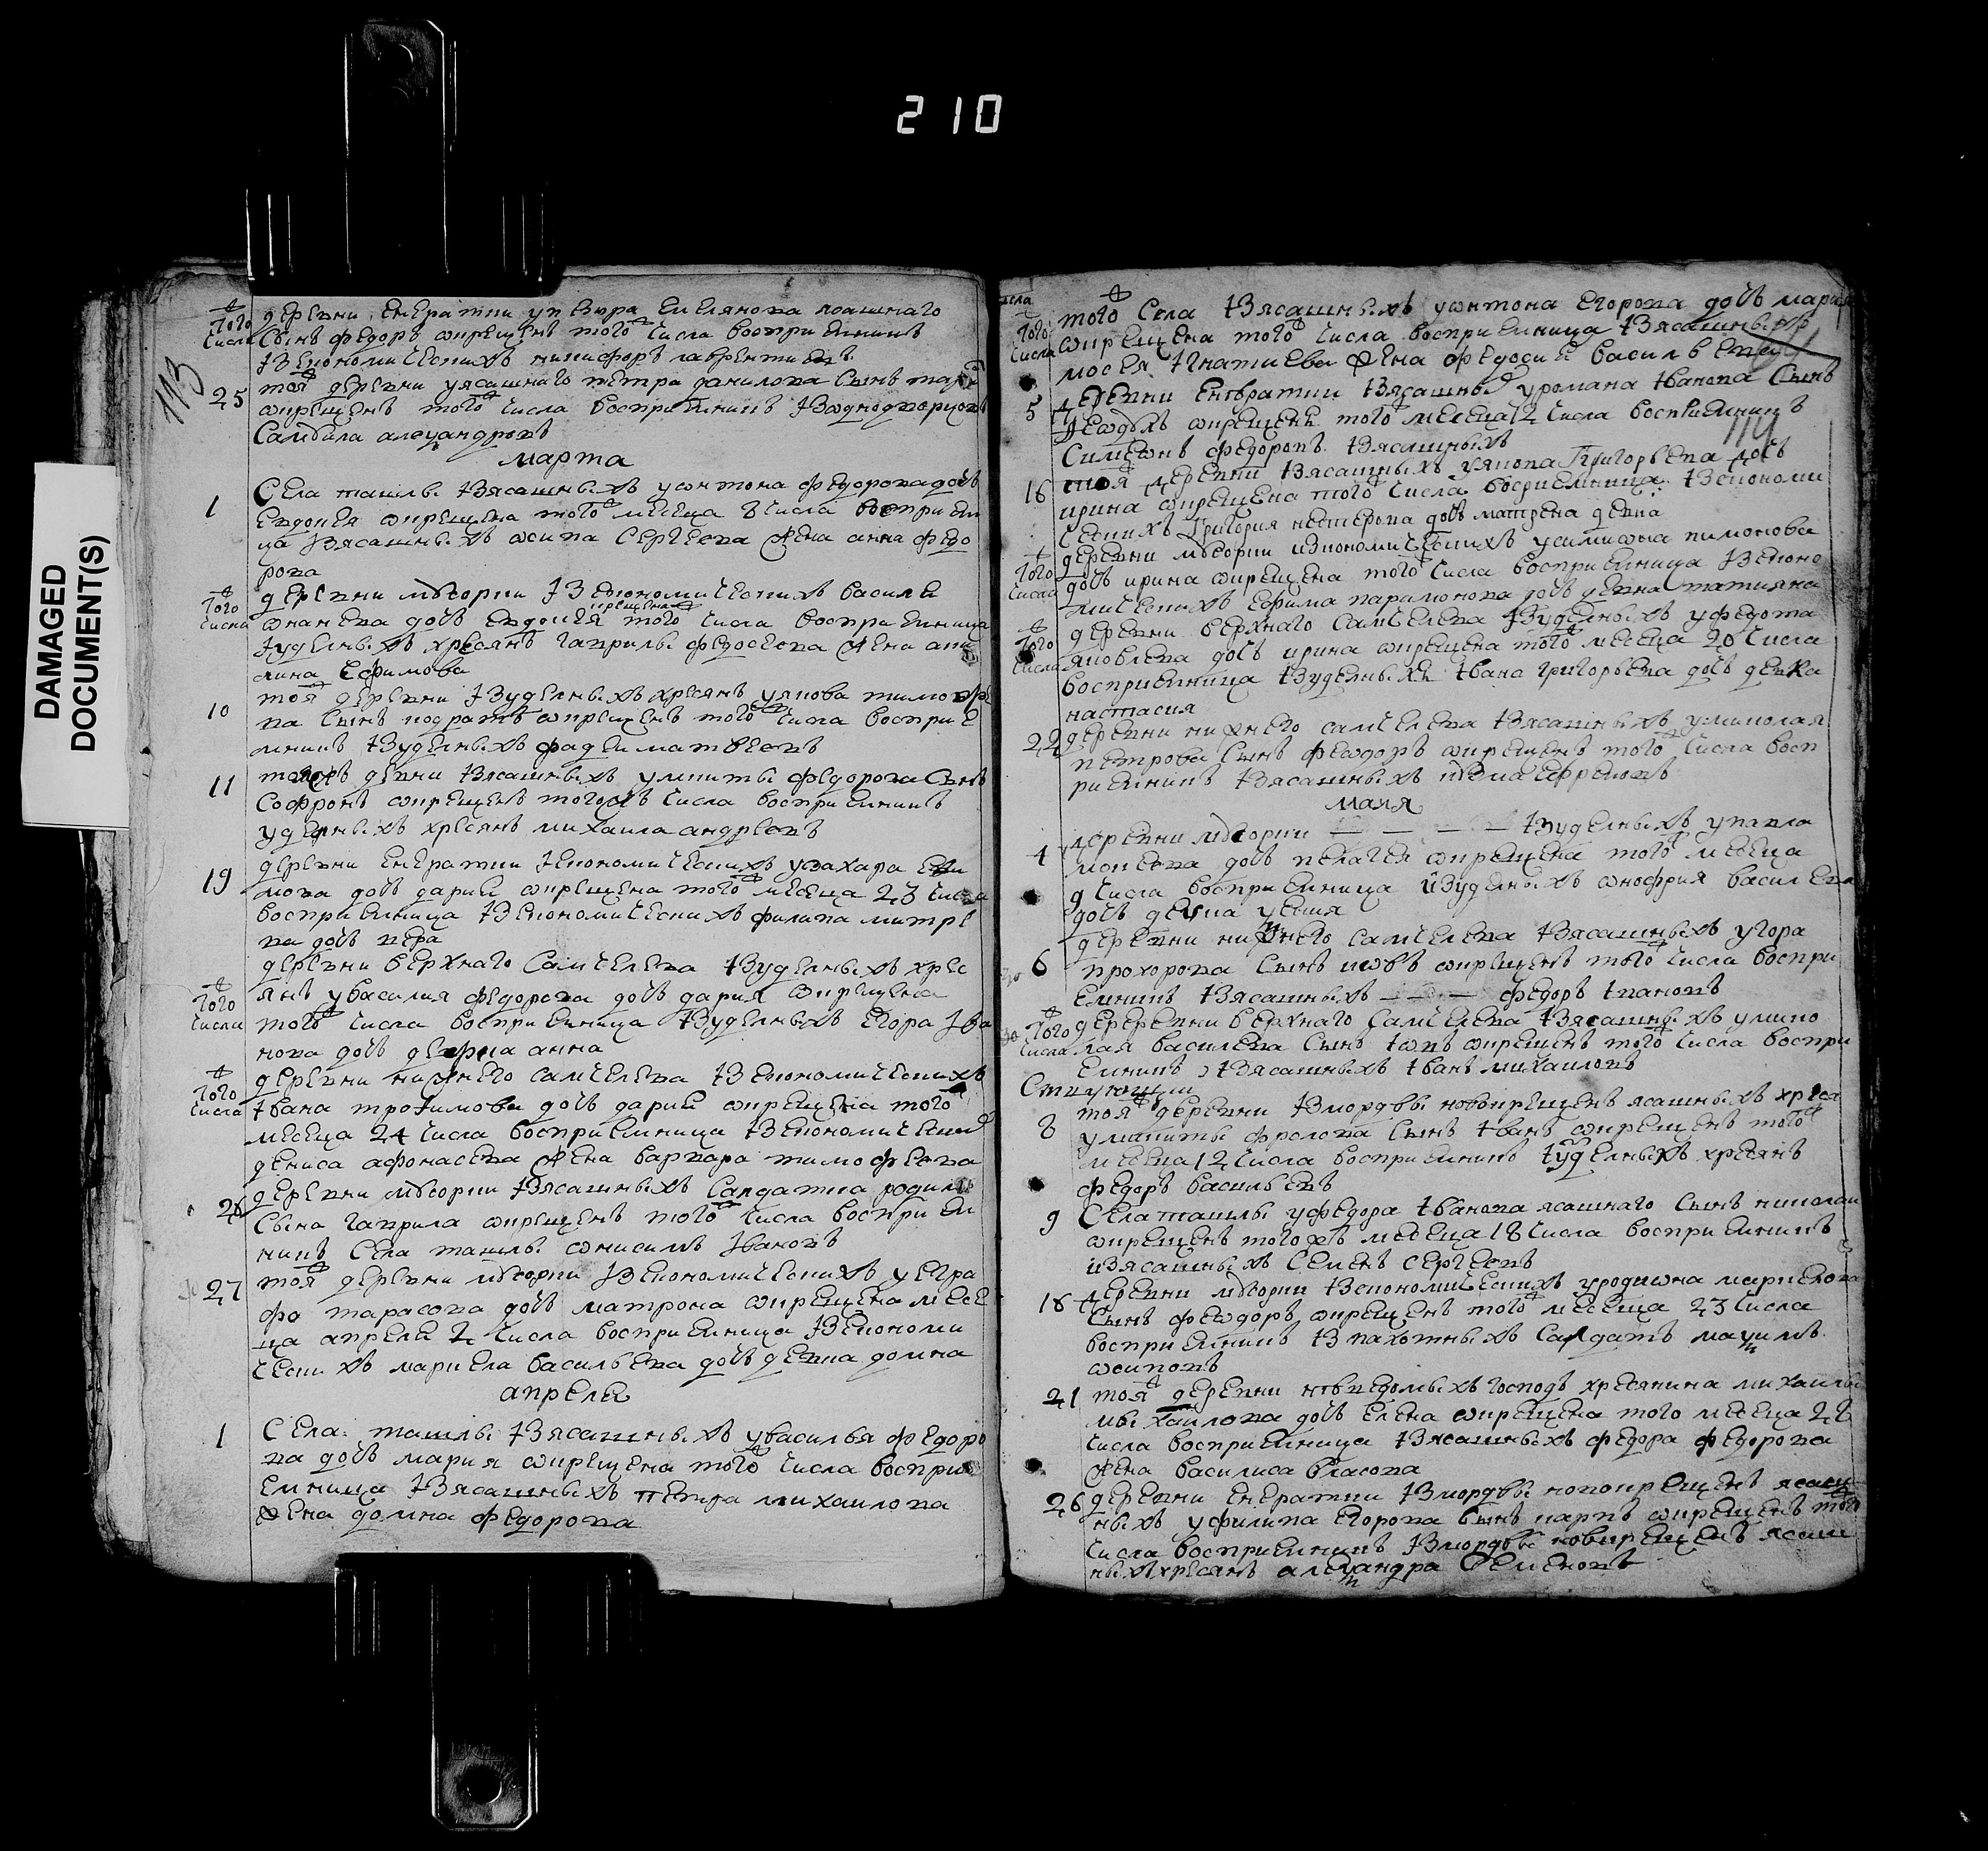 210
DAMAGED
DOCUMENT(S)
113
того ж числа
деревни Екератки у Егора Емелянова ясашнаго
сынъ федоръ окрещенъ того ж числа восприемникъ
Iзекономическихъ никифоръ лаврентиевъ
25 тоя ж деревни уясашнаго петра данилова сынъ
окрещенъ того ж числа восприемникъ Iзоднодворцовъ
Самоила алеѯандровъ
марта
1 Села ташлы Iзясашныхъ уантона федорова дочь
евдокея окрещена того ж месеца 8 числа восприемни
ца Iзясашныхъ осипа Сергеева жена анна федо
рова
того ж числа
деревни Iзекономическихъ василея
ананева дочь евдокея крещена того ж числа восприемница
Iуделныхъ хресянъ гаврилы федосеева жена аку
лина Ефимова
10 тоя ж деревни Iзуделныхъ хресянъ уякова тимофе
ва сынъ кодратъ окрещенъ того ж числа восприе
мникъ Iзуделныхъ фадеи матвеевъ
11 тоя ж девни Iзясашныхъ умикиты федорова сынъ
Софронъ окрещенъ того жъ числа восприемникъ
уделныхъ хресянъ михаила андреевъ
19 деревни Екератки Iекономическихъ узахара
мова дочь дария окрещена того ж месеца 23 числа
восприемница Iзекономическихъ филипа митре
ва дочь вера
того ж числа
деревни верхнаго Самчелева Iзуделныхъ хрес
янъ увасилия федорова дочь дария окрещена
того ж числа восприемница Iзуделныхъ Егора Iва
нова дочь девка анна
того ж числа
деревни нижнего самчелева Iзекономическихъ
Iвана трофимова дочь дария окрещена того ж
месеца 24 числа восприемница Iзекономически
дениса афонасева жена варвара тимофеева
26 деревни Iзясашныхъ Салдатка родила
сына гаврила окрещенъ того ж числа восприем
никъ Села ташлы онисимъ Iвановъ
27 тоя ж деревни Iзекономическихъ уегра
фа тарасова дочь матрона окрещена месе
ца апреля 2 числа восприемница Iзекономи
ческихъ маркела васильева дочь девка домна
апреля
1 Села ташлы Iзясашныхъ увасилья федоро
ва дочь мария окрещена того ж числа воспри
емница Iзясашныхъ петра михаилова
жена домна федорова
числа
того ж числа
того ж Села Iзясашныхъ уантона Егорова дочь мария
окрещена того ж числа восприемница Iзясашныхъ
мосея Iгнатиева жена федосия василвева
114
5 деревни Iзясашныхъ уромана Iванова сынъ
окрещенъ того ж месеца 12 числа восприемникъ
Симеонъ федоровъ Iзясашныхъ
16 тоя ж деревни Iзясашныхъ уякова Григорвева дочь
ирина окрещена того ж числа восприемница Iзекономи
ческихъ Григория нестерова дочь матрена девка
того ж числа
деревни изекономическихъ усимиона пимонова
дочь ирина окрещена того ж числа восприемница Iзеконо
мическихъ Ефима парамонова дочь девка татияна
того ж числа
деревни верхнаго самчелева Iзуделныхъ уфедота
яковлева дочь ирина окрещена того ж месеца 20 числа
восприемница Iзуделныхъ Iвана григорьева дочь девка
настасия
22 деревни нижнего самчелева Iзясашныхъ умиколая
петрова сынъ феодоръ окрещенъ того ж числа восп
риемникъ Iзясашныхъ
маия
4 деревни — — — — Iзуделныхъ упавла
мокеева дочь пелагея окрещена того ж месеца
9 числа восприемница изуделныхъ онофрия василева
дочь девка
6 деревни нижнего самчелева Iзясашныхъ уегора
прохорова сынъ иовъ окрещенъ того ж числа воспри
емникъ Iзясашныхъ — — — федоръ Iвановъ
того ж числа
деревни верхнаго самчелева Iзясашныхъ умико
лая василева сынъ окрещенъ того ж числа воспри
емникъ Iзясашныхъ Iванъ михаиловъ
8 тоя ж деревни Iзмордвы новокрещенъ ясашныхъ хреся
уникиты фролова сынъ Iванъ окрещенъ того ж
месеца 12 числа восприемникъ Iуделныхъ хресянъ
федоръ васильевъ
9 Села ташлы уфедора Iванова ясашнаго сынъ николаи
окрещенъ того жъ месеца 18 числа восприемникъ
изясашныхъ Семенъ сергеевъ
18 деревни Iзекономическихъ уродиона маркелова
сынъ феодоръ окрещенъ того ж месеца 23 числа
восприемникъ Iзпахотныхъ салдатъ маѯимъ
осиповъ
21 тоя ж деревни господъ хресянина михаилы
михаилова дочь Елена окрещена того месеца 22
числа восприемница Iзясашныхъ федора федорова
жена василиса власова
26 деревни Екератки Iзмордвы новокрещенъ ясаш
ныхъ уфилипа Егорова сынъ карпъ окрещенъ того
числа восприемникъ Iзмордвы новокрещенъ ясаш
ныхъ хресянъ алеѯандра Семеновъ